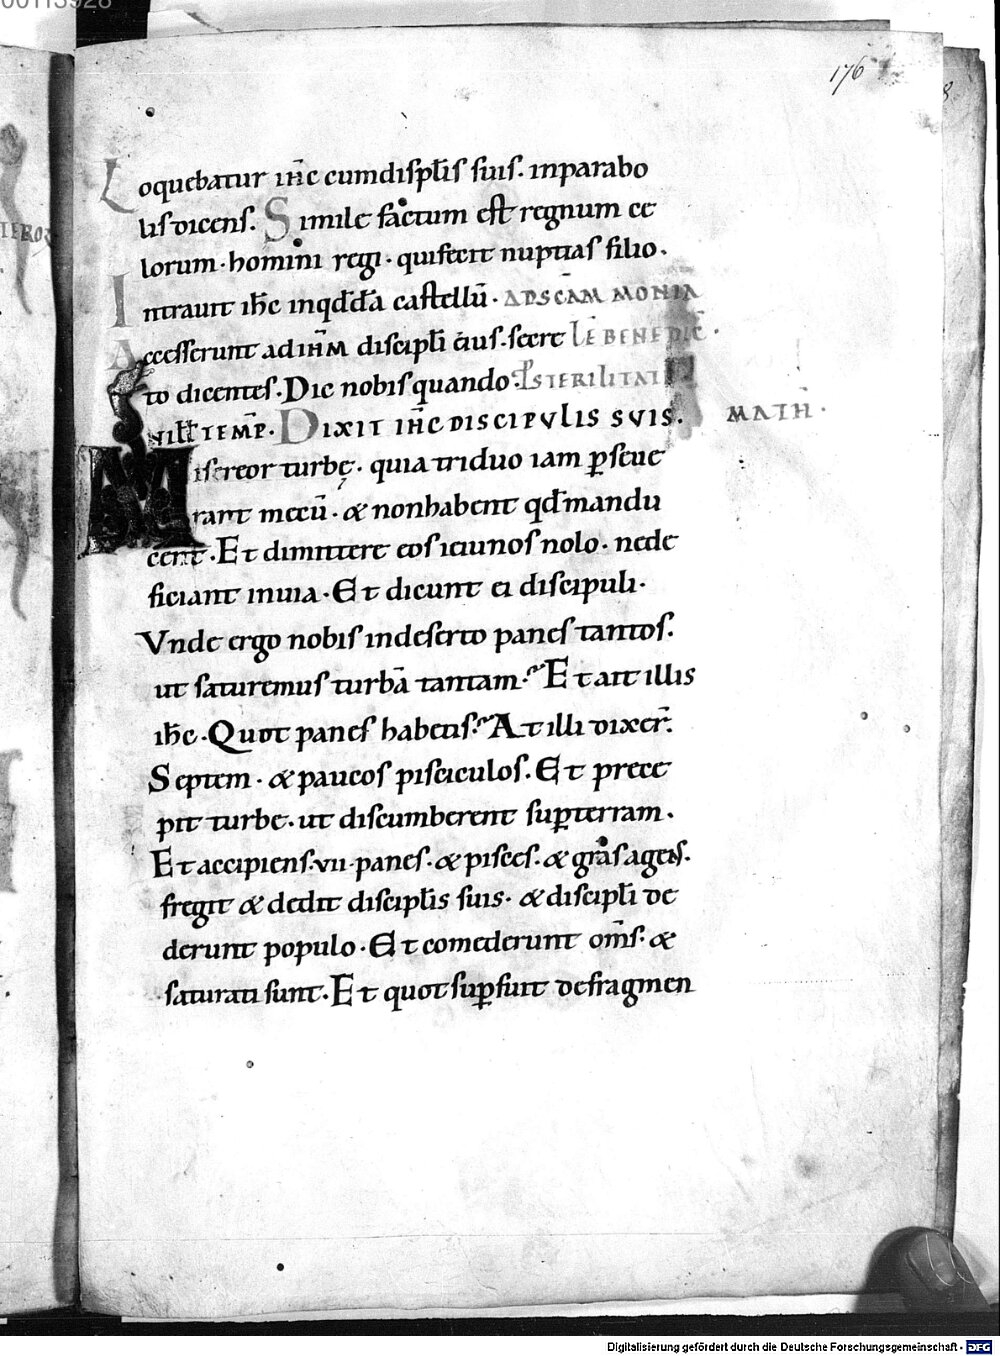 00113928
176
Loquebatur ihc̄ cum discipl̄is suis. in parabo
lis dicens. Simile factum est regnum ce
lorum. homini regi. qui fecit nuptias filio.
Intrauit ih̄c in qđđā castellū. AD SC̄AM MONIA
Accesserunt ad ihm̄ discipl̄i ei᾽us. secre LE BENEDIC̄.
to dicentes. Dic nobis quando. STERILITATI
TEMP̄. DIXIT IHC̄ DISCIPVLIS SVIS. MATH̄.
Misereor turbę. quia triduo iam ꝑseue
rant mecū. & non habent qđ mandu
cent. Et dimittere eos ieiunos nolo. ne de
ficiant in uia. Et dicunt ei discipuli.
Vnde ergo nobis in deserto panes tantos.
ut saturemus turbā tantam. Et ait illis
ih̄c. Quot panes habetis? At illi dixer̄.
Septem. & paucos pisciculos. Et prece
pit turbe. ut discumberent suꝑ terram.
Et accipiens .vii. panes. & pisces. & gr̄as agens.
fregit & dedit discipl̄is suis. & discipl̄i de
derunt populo. Et comederunt om̄s. &
saturati sunt. Et quot suꝑfuit de fragmen
Digitalisierung gefördert durch die Deutsche Forschungsgemeinschaft - DFG